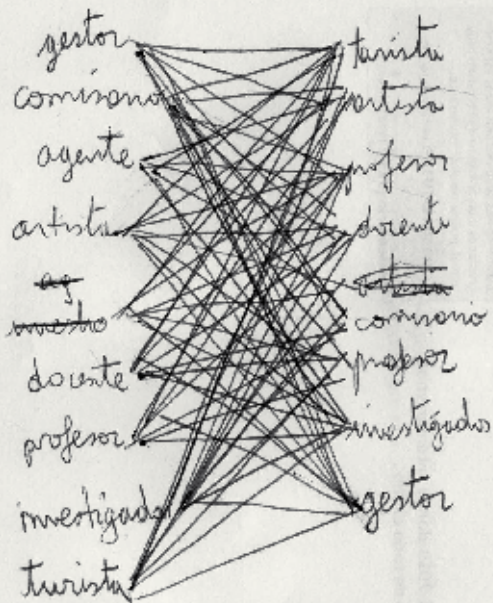 gestor
comisario
agente
artista
ag
maestro
docente
profesor
investigador
turista
turista
artista
profesor
docente
artista
comisario
profesor
investigador
gestor